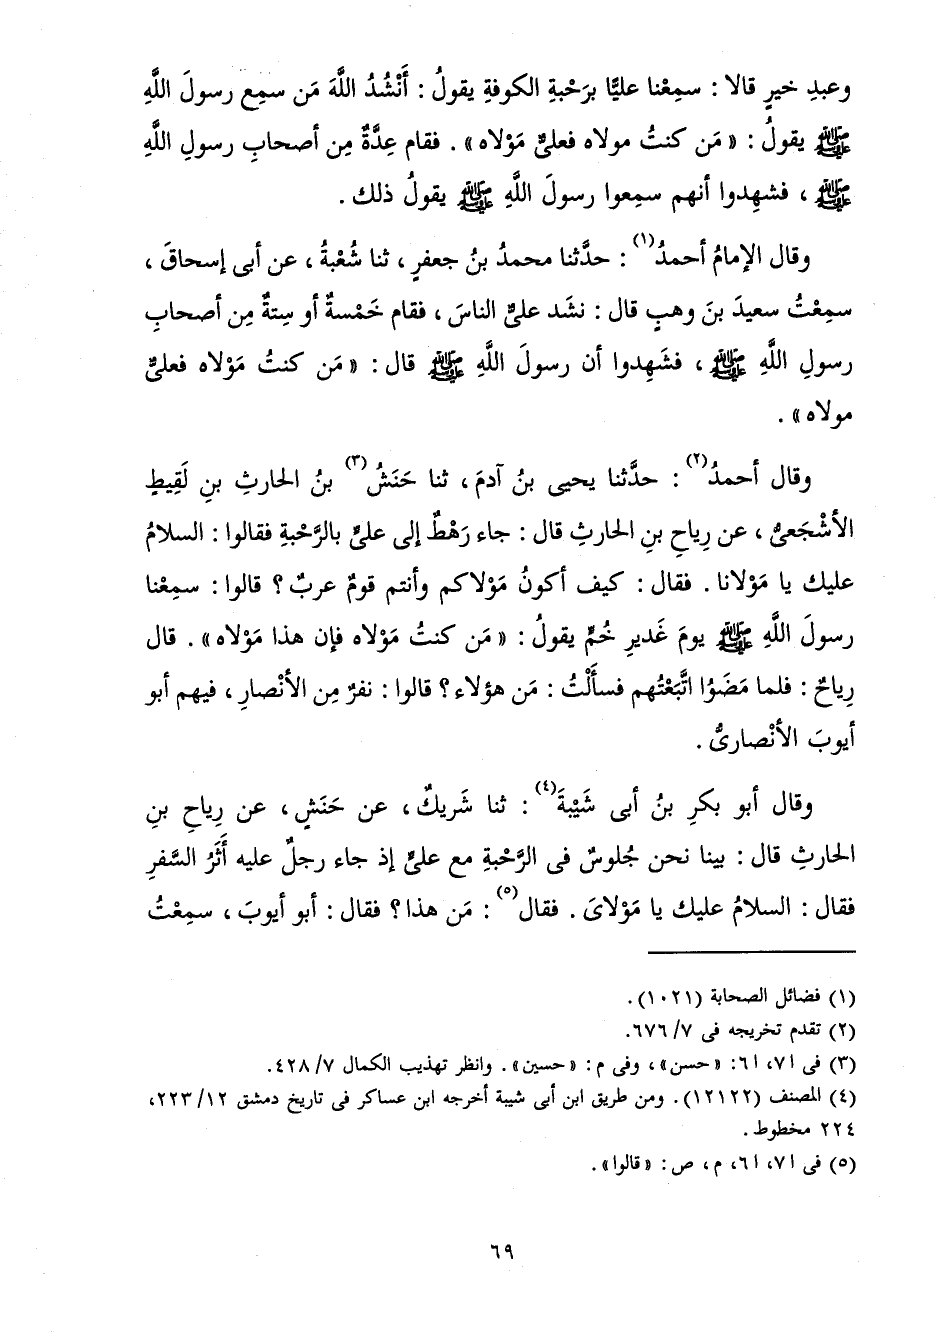 وعبدِ خيرٍ قالا : سمِعْنا عليًّا برَحْبةِ الكوفةِ يقولُ : أَنْشُدُ اللَّهَ مَن سمِع رسولَ اللَّهِ
ﷺ يقولُ : « مَن كنتُ مولاه فعلىٌّ مَوْلاه » . فقام عِدَّةٌ مِن أصحابِ رسولِ اللَّهِ
ﷺ ، فشهِدوا أنهم سمِعوا رسولَ اللَّهِ ﷺ يقولُ ذلك .
وقال الإمامُ أحمدُ(١) : حدَّثنا محمدُ بنُ جعفرٍ ، ثنا شُعْبةُ ، عن أبى إسحاقَ ،
سمِعْتُ سعيدَ بنَ وهبٍ قال : نشَد علىٌّ الناسَ ، فقام خَمْسةٌ أو سِتةٌ مِن أصحابِ
رسولِ اللَّهِ ﷺ ، فشَهِدوا أن رسولَ اللَّهِ ﷺ قال : « مَن كنتُ مَوْلاه فعلىٌّ
مولاه » .
وقال أحمدُ(٢) : حدَّثنا يحيى بنُ آدمَ ، ثنا حَنَشُ(٣) بنُ الحارثِ بنِ لَقِيطٍ
الأشْجَعىُّ ، عن رِياحِ بنِ الحارثِ قال : جاء رَهْطٌ إلى علىٍّ بالرَّحْبةِ فقالوا : السلامُ
عليك يا مَوْلانا . فقال : كيف أكونُ مَوْلاكم وأنتم قومٌ عربٌ ؟ قالوا : سمِعْنا
رسولَ اللَّهِ ﷺ يومَ غَديرِ خُمٍّ يقولُ : « مَن كنتُ مَوْلاه فإن هذا مَوْلاه » . قال
رِياحٌ : فلما مَضَوُا اتَّبَعْتُهم فسأَلْتُ : مَن هؤلاء ؟ قالوا : نفرٌ مِن الأنْصارِ ، فيهم أبو
أيوبَ الأنْصارىُّ .
وقال أبو بكرِ بنُ أبى شَيْبةَ(٤) : ثنا شَريكٌ ، عن حَنَشٍ ، عن رِياحِ بنِ
الحارثِ قال : بينا نحن جُلوسٌ فى الرَّحْبةِ مع علىٍّ إذ جاء رجلٌ عليه أَثَرُ السَّفرِ
فقال : السلامُ عليك يا مَوْلاىَ . فقال(٥) : مَن هذا ؟ فقال : أبو أيوبَ ، سمِعْتُ
(١) فضائل الصحابة (١٠٢١) .
(٢) تقدم تخريجه فى ٧/ ٦٧٦.
(٣) فى ٧١، ٦١: « حسن » ، وفى م : « حسين » . وانظر تهذيب الكمال ٧/ ٤٢٨.
(٤) المصنف (١٢١٢٢) . ومن طريق ابن أبى شيبة أخرجه ابن عساكر فى تاريخ دمشق ١٢/ ٢٢٣،
٢٢٤ مخطوط .
(٥) فى ٧١، ٦١، م، ص : « قالوا » .
٦٩